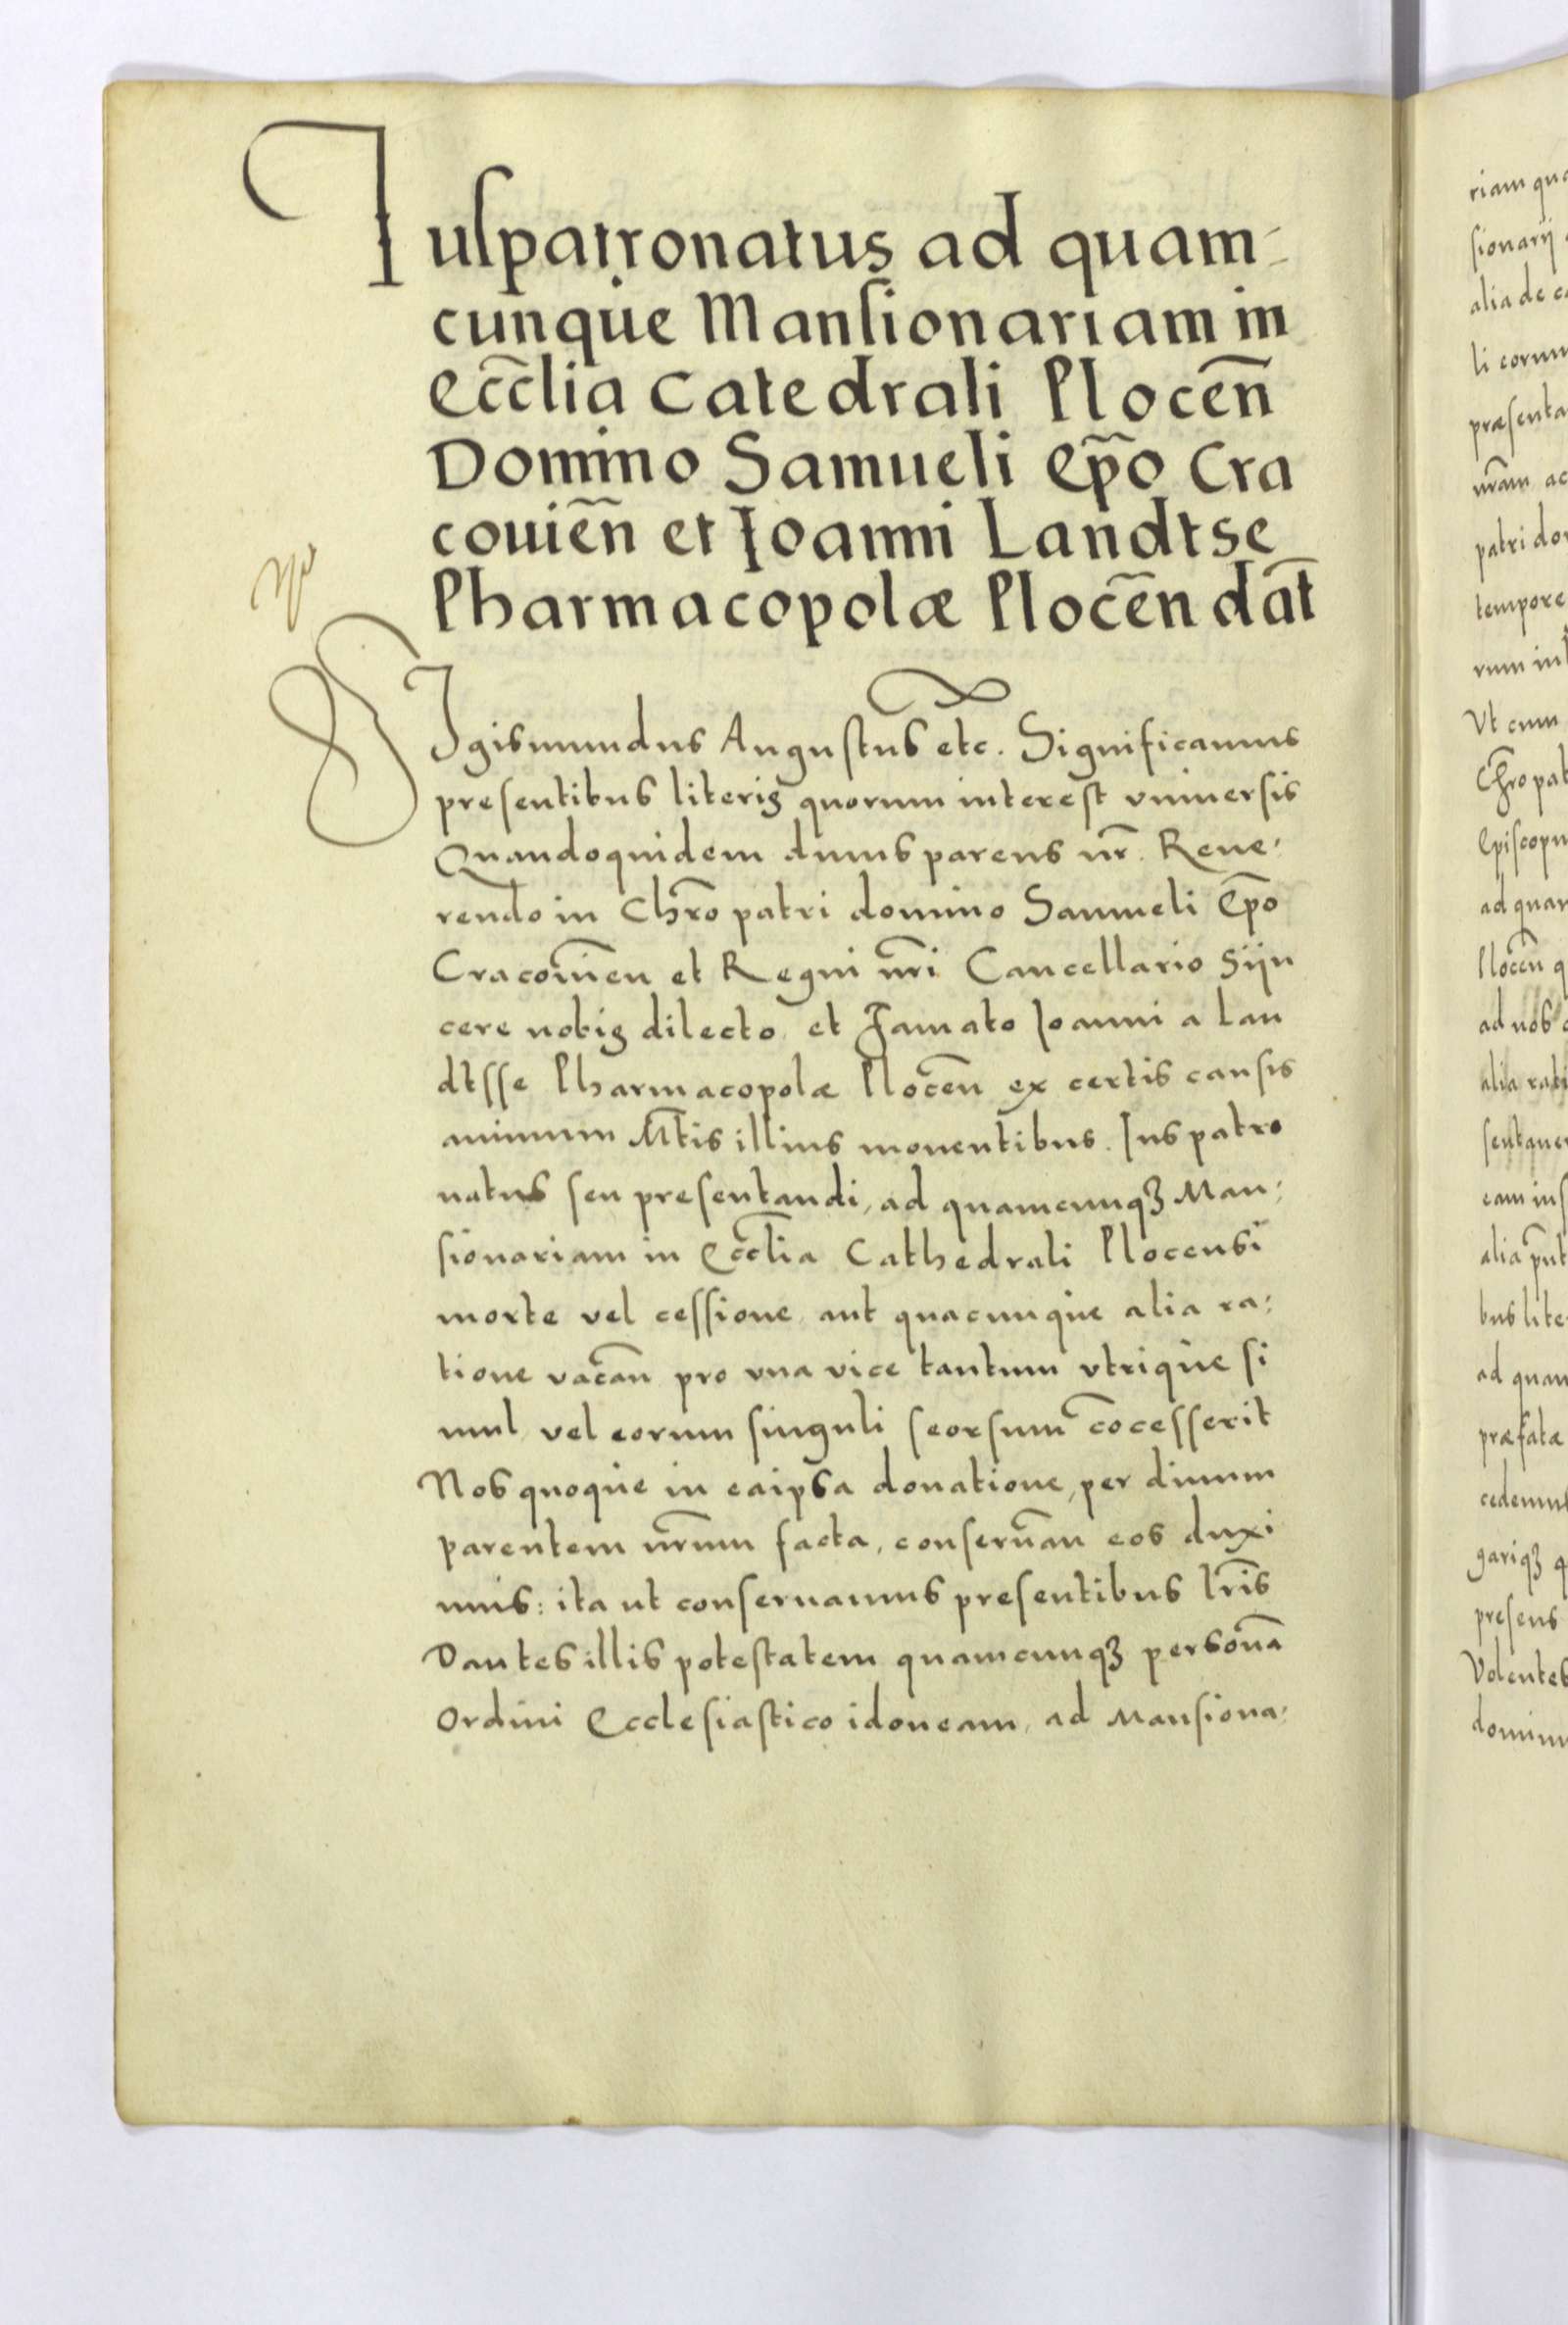 Iuſpatronatus ad quam-
cunque Manſionariam in
Eccl̄ia Catedrali Plocen̄
Domino Samueli Ep̄o Cra
couien̄ et Ioanni Landtse
Pharmacopolæ Plocen̄ dat̄
SIgismundus Auguſtus etc. Significamus
preſentibus literis quorum intereſt vniuersis
Quandoquidem diuus parens nr̄. Reue-
rendo in Chr̄o patri domino Samueli Ep̄o
Cracouien̄ et Regni nr̄i Cancellario Sijn
cere nobis dilecto et Famato Ioanni a Lan
dtſſe Pharmacopolæ Plocen̄ ex certis cauſis
animum M̄tis illius mouentibus. Ius patro
natus ſeu preſentandi, ad quamcunqꝫ Man-
ſionariam in Eccl̄ia Cathedrali Plocensi
morte vel ceſſione aut quacunque alia ra-
tione vacan̄ pro vna vice tantum vtrique ſi
mul vel eorum ſinguli ſeorſum cōcesserit
Nos quoque in eaipsa donatione, per diuum
parentem nr̄um facta, conſeruan̄ eos duxi
mus: ita ut conſeruamus preſentibus lr̄is
Dantes illis poteſtatem quamcunqꝫ personā
Ordini Eccleſiaſtico idoneam, ad Manſiona-
riam qua
ſionarij
alia de c
li eorum
præſenta
nr̄am ac
patri do
tempore
rum in
Vt cum
Chr̄o pat
Epiſcopu
ad quam
Plocen̄ q
ad nos
alia rati
ſentaue
eam in
alia
bus lite
ad quam
præfatæ
cedemus
gariqꝫ q
preſens
Volentes
dominu